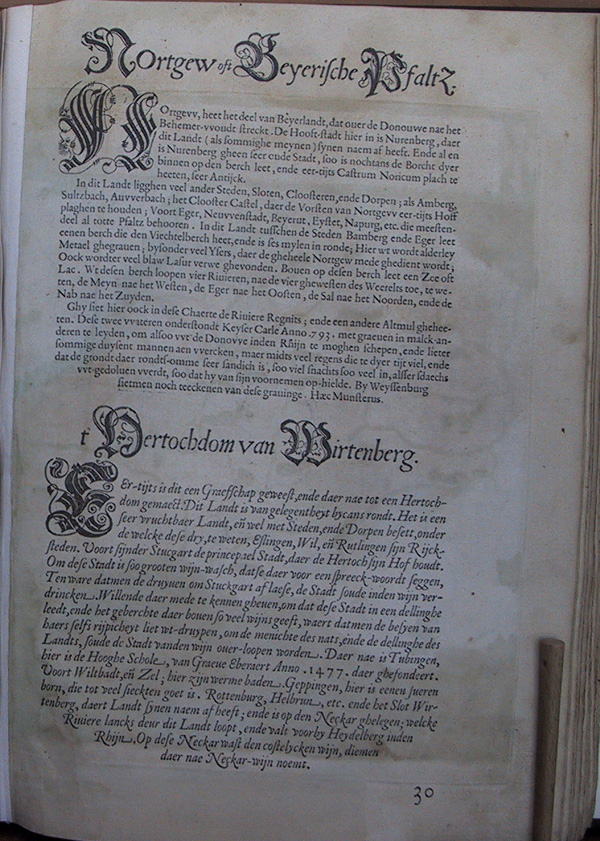 Nortgew oft Beyerische Pfaltz.
NOrtgevv, heet het deel van Beyerlandt, dat ouer de Donouwe nae het
Behemer-vvoudt streckt. De Hooft-stadt hier in is Nurenberg, daer
dit Landt (als sommighe meynen) synen naem af heeft. Ende al en
is Nurenberg gheen seer oude Stadt, soo is nochtans de Borcht dyer
binnen op den berch leet, ende eer-tijts Castrum Noricum plach te
heeten, seer Antijck.
In dit Landt ligghen veel ander Steden, Sloten, Cloosteren, ende Dorpen; als Amberg,
Sultzbach, Auvverbach; het Clooster Castel, daer de Vorsten van Nortgevv eer-tijts Hoff
plaghen te houden; Voort Eger, Neuvvenstadt, Beyerut, Eystet, Napurg, etc. die meesten-
deel al totte Pfaltz behooren. In dit Landt tusschen de Steden Bamberg ende Eger leet
eenen berch die den Viechtelberch heet, ende is ses mylen in ronde; Hier wt wordt alderley
Metael ghegrauen; bysonder veel Ysers, daer de gheheele Nortgew mede ghedient wordt;
Oock wordter veel blaw Lasur verwe ghevonden. Bouen op desen berch leet een Zee oft
Lac. Wt desen berch loopen vier Riuieren, nae de vier ghewesten des Weerelts toe, te we-
ten, de Meyn nae het Westen, de Eger nae het Oosten, de Sal nae het Noorden, ende de
Nab nae het Zuyden.
Ghy siet hier oock in dese Chaerte de Riuiere Regnits; ende een andere Altmul ghehee-
ten. Dese twee vvateren onderstondt Keyser Carle Anno. 793. met grauen in malck-an-
deren te leyden, om alsoo vvt de Donovve inden Rhijn te moghen schepen, ende lieter
sommige duysent mannen aen vvercken, maer midts veel regens die te dyer tijt viel, ende
dat de grondt daer rondts-omme seer sandich is, soo viel snachts soo veel in, alsser sdaechs
vvt-gedoluen vverdt, soo dat hy van sijn voornemen op-hielde. By Weyssenburg
sietmen noch teeckenen van dese grauinge. Hæc Munsterus.
t' Hertochdom van Wirtenberg.
EEr-tijts is dit een Graefschap geweest, ende daer nae tot een Hertoch-
dom gemaect. Dit Landt is van gelegentheyt bycans rondt. Het is een
seer vruchtbaer Landt, eñ wel met Steden, ende Dorpen beset, onder
de welcke dese dry, te weten, Eslingen, Wil, eñ Rutlingen sijn Rijck-
steden. Voort sijnder Stucgart de principael Stadt, daer de Hertoch sijn Hof houdt.
Om dese Stadt is soo grooten wijn-wasch, datse daer voor een spreeck-woordt seggen,
Ten ware datmen de druyuen om Stuckgart af laese, de Stadt soude inden wijn ver-
drincken. Willende daer mede te kennen gheuen, om dat dese Stadt in een dellinghe
leedt, ende het geberchte daer bouen so veel wijns geeft, waert datmen de besyen van
haers selfs rijpicheyt liet wt-druypen, om de menichte des nats, ende de dellinghe des
Landts, soude dc Stadt vanden wijn ouer-loopen worden. Daer nae is Tubingen,
hier is de Hooghe Schole, van Graeue Eberaert Anno. 1477. daer ghefondeert.
Voort Wiltbadt, eñ Zel; hier zijn werme baden. Geppingen, hier is eenen sueren
born, die tot veel sieckten goet is. Rottenburg, Helbrun, etc. ende het Slot Wir-
tenberg, daert Landt synen naem af heeft; ende is op den Neckar ghelegen; welcke
Riuiere lancks deur dit Landt loopt, ende valt voorby Heydelberg inden
Rhijn. Op dese Neckar wast den costelycken wijn, diemen
daer nae Neckar-wijn noemt.
30